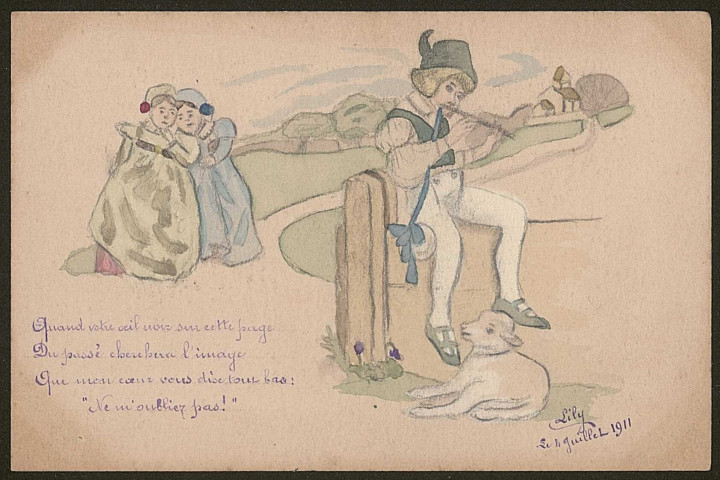 Quand votre œil noir sur cette page
Du passé cherchera l'image
Que mon cœur vous dise tout bas :
"Ne m'oubliez pas!"
Lily
Le 4 Juillet 1911